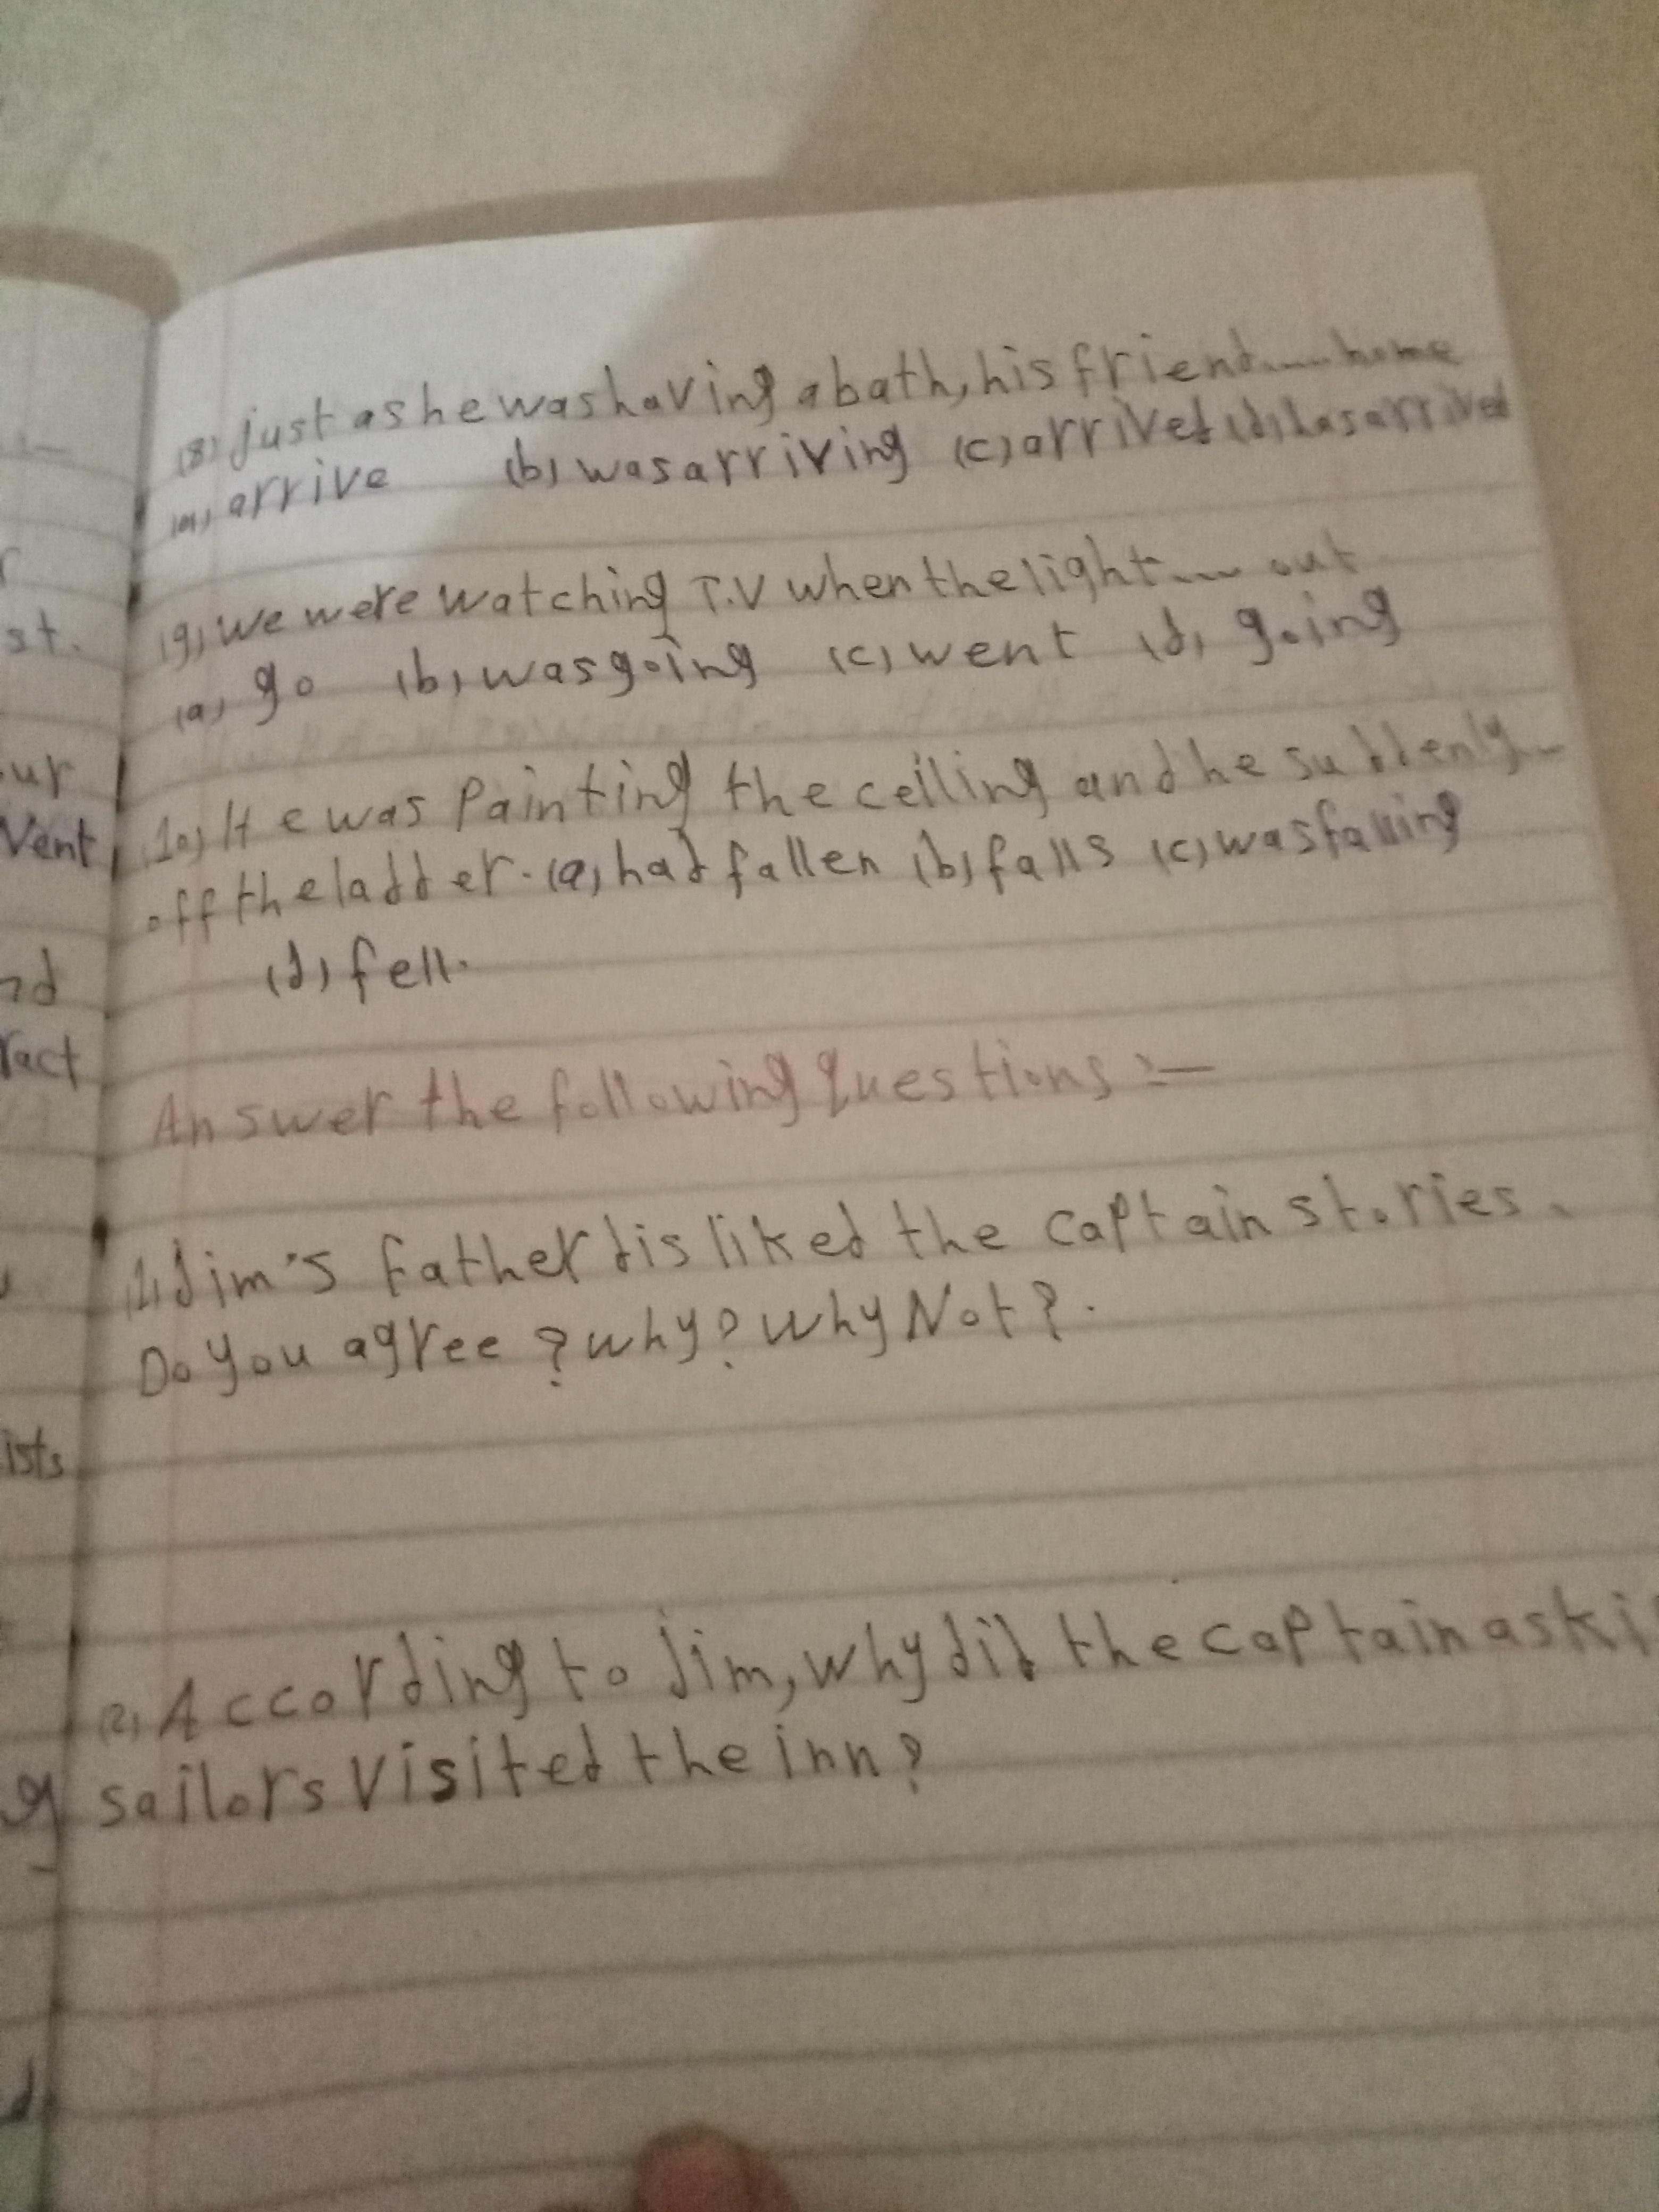 (8) just as he was having a bath, his friend.... home
(a) arrive (b) was arriving (c) arrived (d) has arrived
(9) We were watching T.V when the light.... out
(a) go (b) was going (c) went (d) going
(10) He was painting the ceiling and he suddenly..
off the ladder. (a) had fallen (b) falls (c) was falling
(d) fell.
Answer the following questions :-
(1) Jim's father disliked the captain stories.
Do you agree ? why? why Not?.
(2) According to Jim, why did the captain ask if
sailors visited the inn?
st.
ur
vent
nd
ract
ists
g